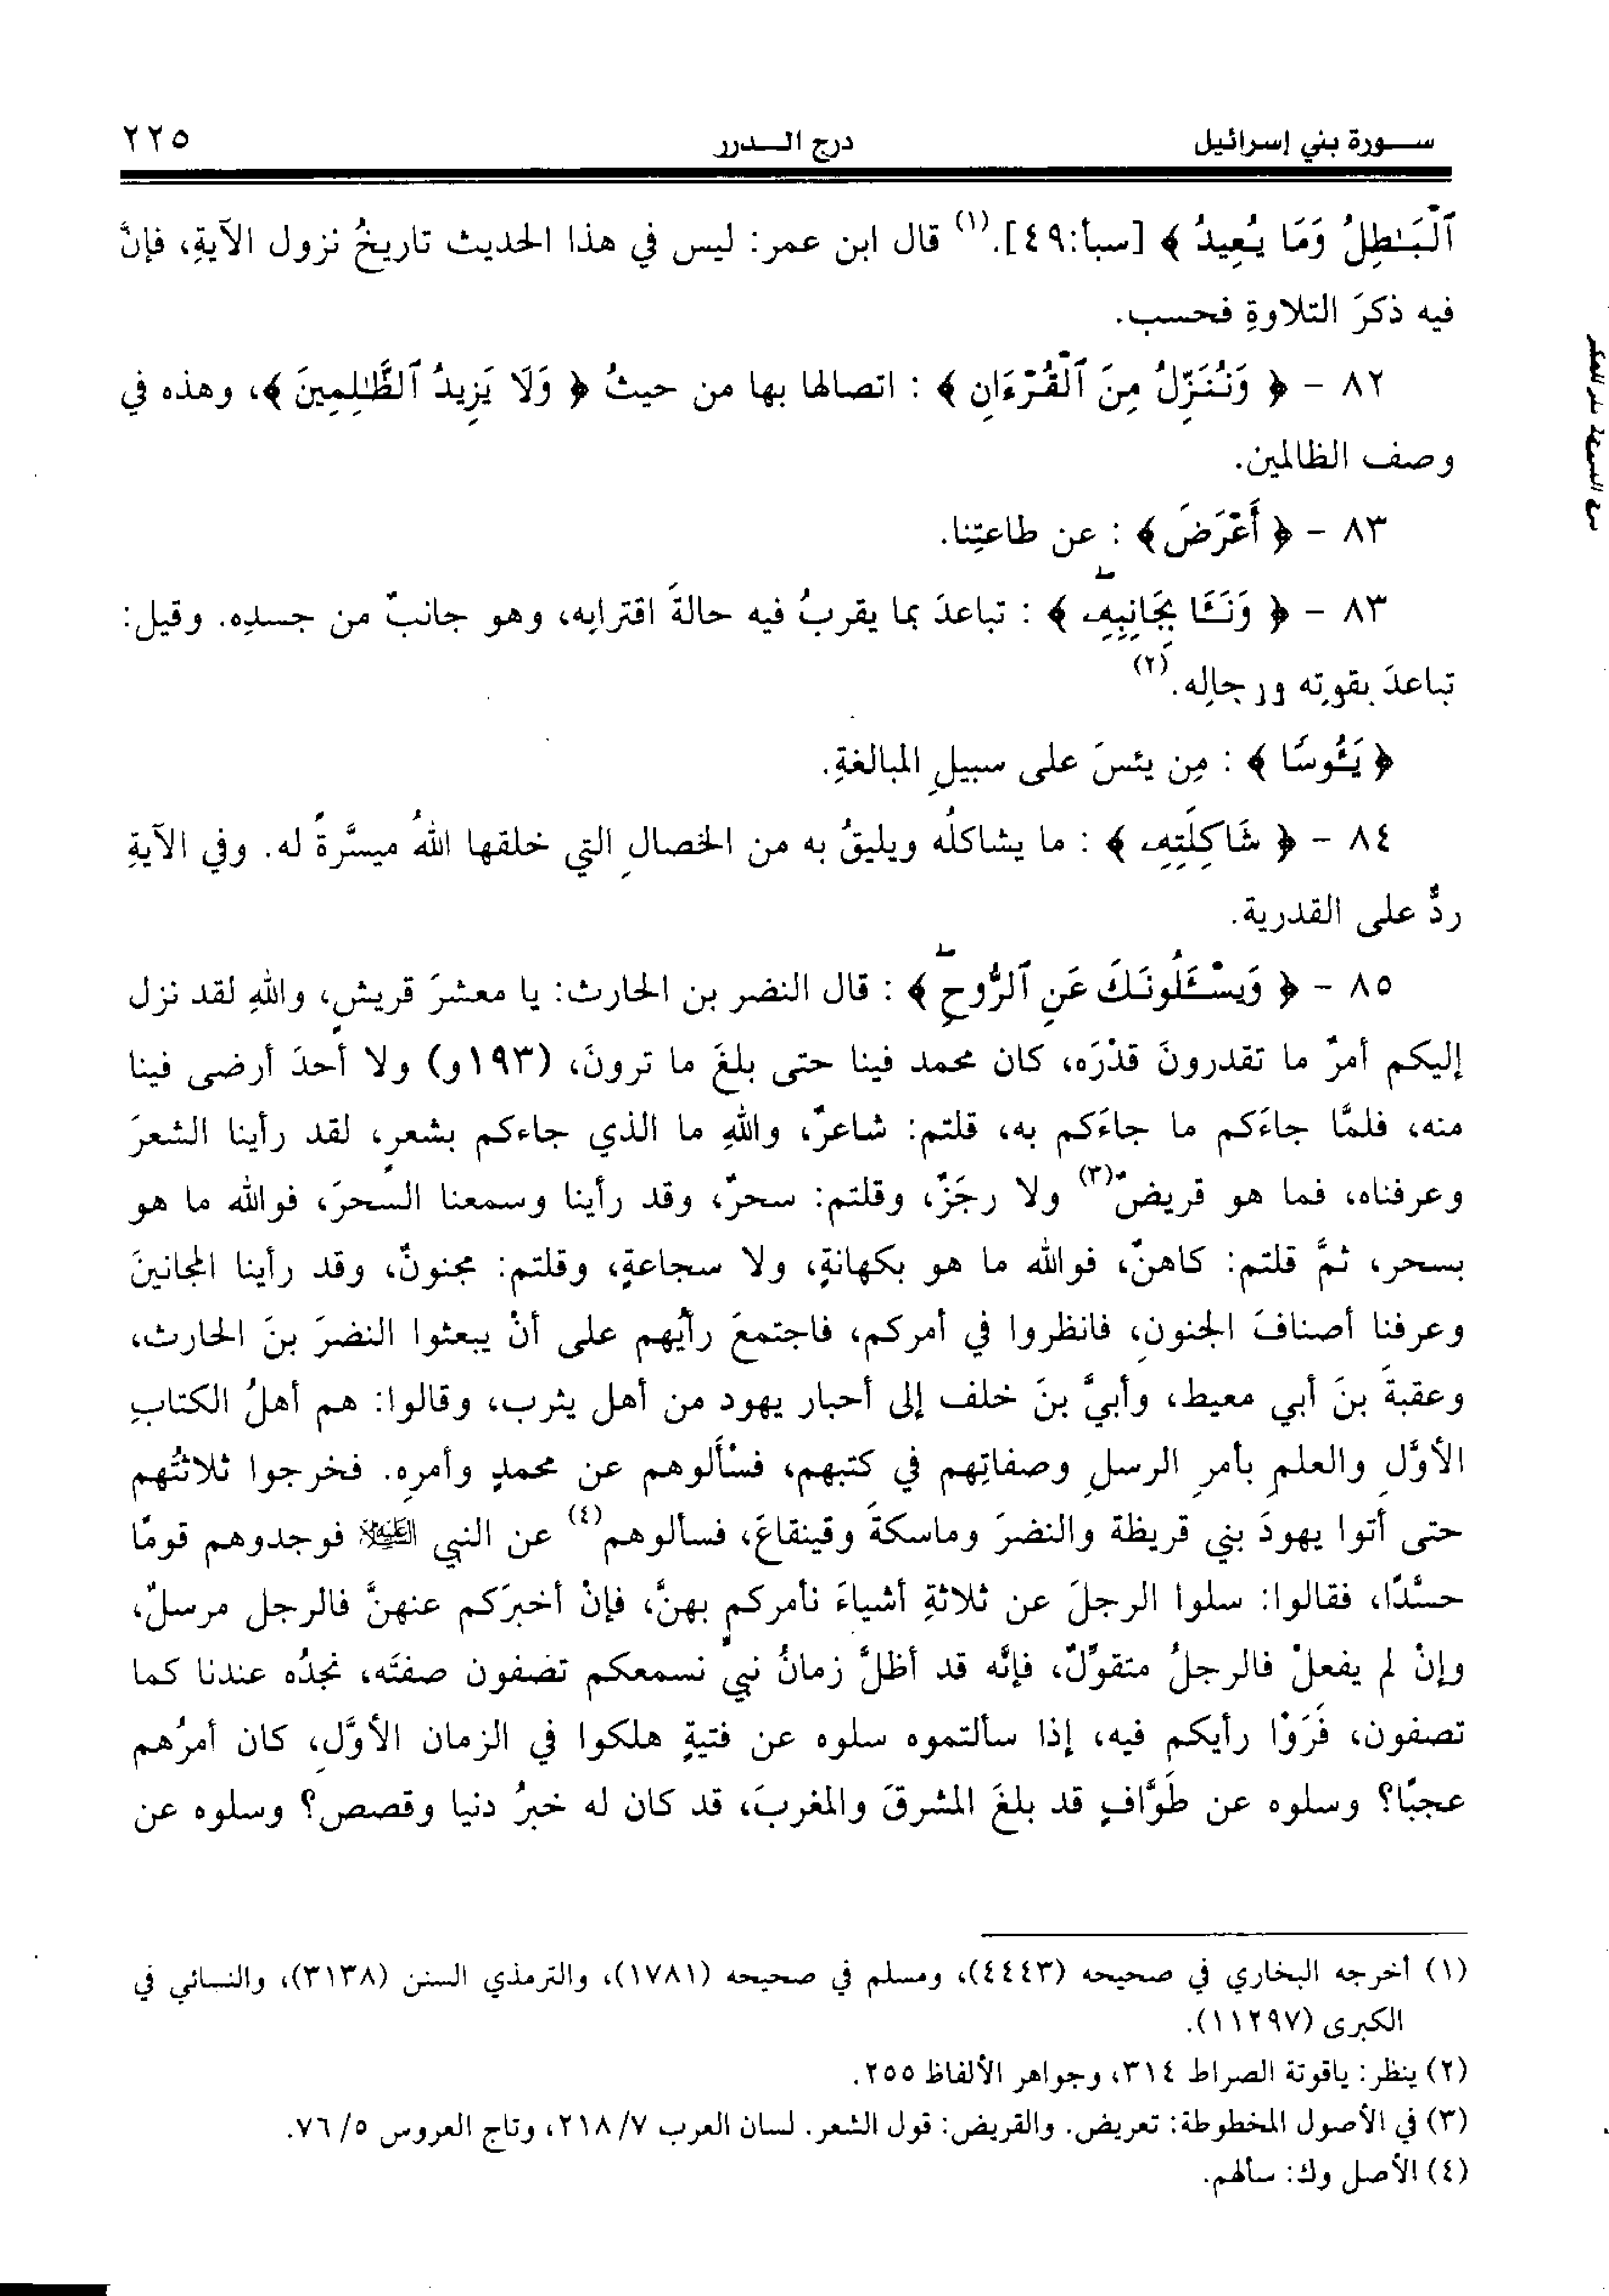 سورة بني إسرائيل درج الدرر ٢٢٥
ٱلْبَٰطِلُ وَمَا يُعِيدُ ﴾ [سبأ:٤٩].(١) قال ابن عمر: ليس في هذا الحديث تاريخُ نزول الآيةِ، فإنَّ
فيه ذكرَ التلاوةِ فحسب.
٨٢ - ﴿ وَنُنَزِّلُ مِنَ ٱلْقُرْءَانِ ﴾ : اتصالها بها من حيثُ ﴿ وَلَا يَزِيدُ ٱلظَّٰلِمِينَ ﴾، وهذه في
وصف الظالمين.
٨٣ - ﴿ أَعْرَضَ ﴾ : عن طاعتِنا.
٨٣ - ﴿ وَنَـَٔا بِجَانِبِهِۦ ﴾ : تباعدَ بما يقربُ فيه حالةَ اقترابِه، وهو جانبٌ من جسدِه. وقيل:
تباعدَ بقوتِه ورجالِه.(٢)
﴿ يَـُٔوسًا ﴾ : مِن يئسَ على سبيلِ المبالغةِ.
٨٤ - ﴿ شَاكِلَتِهِۦ ﴾ : ما يشاكلُه ويليقُ به من الخصالِ التي خلقها اللهُ ميسَّرةً له. وفي الآيةِ
ردٌّ على القدرية.
٨٥ - ﴿ وَيَسْـَٔلُونَكَ عَنِ ٱلرُّوحِ ﴾ : قال النضر بن الحارث: يا معشرَ قريشٍ، واللهِ لقد نزل
إليكم أمرٌ ما تقدرونَ قدْرَه، كان محمد فينا حتى بلغَ ما ترونَ، (١٩٣و) ولا أحدَ أرضى فينا
منه، فلمَّا جاءَكم ما جاءَكم به، قلتم: شاعرٌ، واللهِ ما الذي جاءكم بشعرٍ، لقد رأينا الشعرَ
وعرفناه، فما هو قريضٌ(٣) ولا رجَزٌ، وقلتم: سحرٌ، وقد رأينا وسمعنا السحرَ، فوالله ما هو
بسحر، ثمَّ قلتم: كاهنٌ، فوالله ما هو بكهانةٍ، ولا سجاعةٍ، وقلتم: مجنونٌ، وقد رأينا المجانينَ
وعرفنا أصنافَ الجنونِ، فانظروا في أمركم، فاجتمعَ رأيُهم على أنْ يبعثوا النضرَ بنَ الحارث،
وعقبةَ بنَ أبي معيط، وأبيَّ بنَ خلف إلى أحبار يهود من أهل يثرب، وقالوا: هم أهلُ الكتابِ
الأوَّلِ والعلم بأمرِ الرسلِ وصفاتِهم في كتبهم، فسْألوهم عن محمدٍ وأمرِه. فخرجوا ثلاثتُهم
حتى أتوا يهودَ بني قريظة والنضرَ وماسكةَ وقينقاعَ، فسألوهم(٤) عن النبي العَلَيْهِ فوجدوهم قومًا
حسَّدًا، فقالوا: سلوا الرجلَ عن ثلاثةِ أشياءَ نأمركم بهنَّ، فإنْ أخبرَكم عنهنَّ فالرجل مرسلٌ،
وإنْ لم يفعلْ فالرجلُ متقوِّلٌ، فإنَّه قد أظلَّ زمانُ نبيٍّ نسمعكم تصفون صفتَه، نجدُه عندنا كما
تصفون، فَرَوْا رأيكم فيه، إذا سألتموه سلوه عن فتيةٍ هلكوا في الزمان الأوَّلِ، كان أمرُهم
عجبًا؟ وسلوه عن طَوَّافٍ قد بلغَ المشرقَ والمغربَ، قد كان له خبرُ دنيا وقصص؟ وسلوه عن
(١) أخرجه البخاري في صحيحه (٤٤٤٣)، ومسلم في صحيحه (١٧٨١)، والترمذي السنن (٣١٣٨)، والنسائي في
الكبرى (١١٢٩٧).
(٢) ينظر: ياقوتة الصراط ٣١٤، وجواهر الألفاظ ٢٥٥.
(٣) في الأصول المخطوطة: تعريض. والقريض: قول الشعر. لسان العرب ٧/ ٢١٨، وتاج العروس ٥/ ٧٦.
(٤) الأصل وك: سألهم.